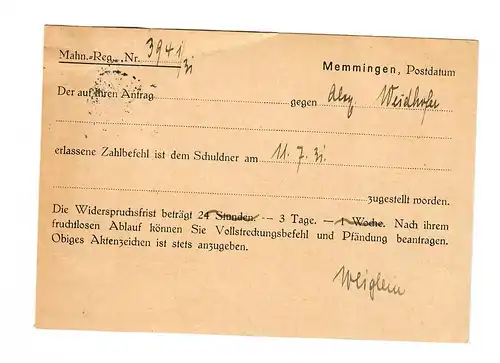 Mahn.-Reg. Nr. 3941/31
Memmingen, Postdatum
Der auf Ihren Antrag gegen Aloy. Weidhofer
erlassene Zahlbefehl ist dem Schuldner am 11. 7. 31.
zugestellt worden.
Die Widerspruchsfrist beträgt 24 Stunden. — 3 Tage. — 1 Woche. Nach ihrem
fruchtlosen Ablauf können Sie Vollstreckungsbefehl und Pfändung beantragen.
Obiges Aktenzeichen ist stets anzugeben.
Weiglein